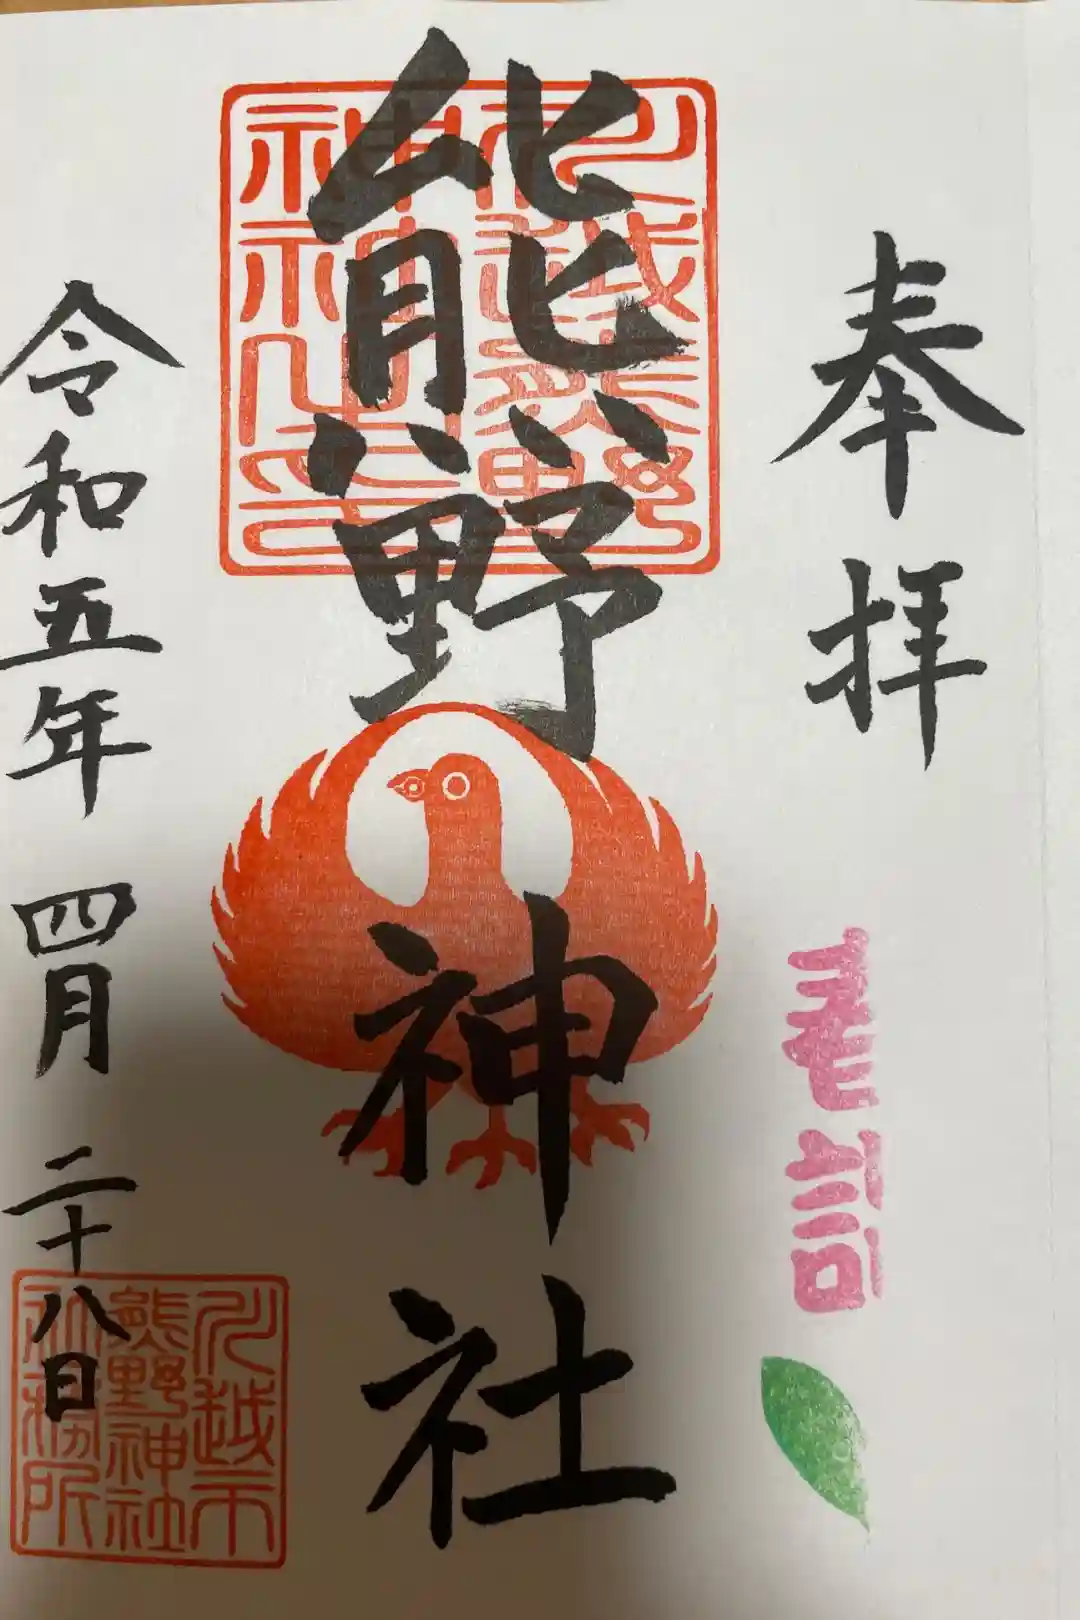 奉拝
春詣
川越熊野
神社之印
熊野神社
令和五年 四月 二十八日
川越市
熊野神社
社務所